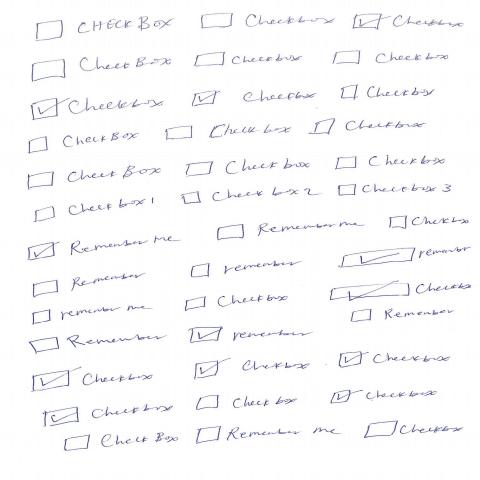 CHECKBOX Checkbox Checkbox
CheckBox Checkbox Checkbox
Checkbox Checkbox Checkbox
CheckBox Check box Checkbox
Check Box Check box Checkbox
Checkbox 1 Check box 2 Checkbox 3
Remember me Remember me Checkbox
Remember remember remember
remember me Checkbox Checkbox
Remember remember Remember
Checkbox Checkbox Checkbox
Checkbox Check box Checkbox
Check Box Remember me Checkbox